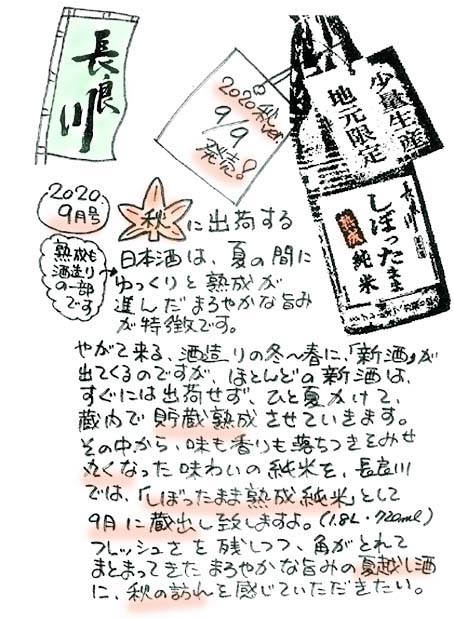 長良川
2020秋ver
9/9
発売!
少量生産
地元限定
長良川
しぼったまま
熟成
純米
2020.
9月号
熟成も
酒造り
の一部
です
秋に出荷する
日本酒は、夏の間に
ゆっくりと熟成が
進んだまろやかな旨み
が特徴です。
やがて来る、酒造りの冬〜春に、「新酒」が
出てくるのですが、ほとんどの新酒は、
すぐには出荷せず、ひと夏かけて、
蔵内で貯蔵熟成させていきます。
その中から、味も香りも落ちつきをみせ
丸くなった味わいの純米を、長良川
では、「しぼったまま熟成純米」として
9月に蔵出し致しますよ。(1.8L・720ml)
フレッシュさを残しつつ、角がとれて
まとまってきたまろやかな旨みの夏越し酒
に、秋の訪れを感じていただきたい。